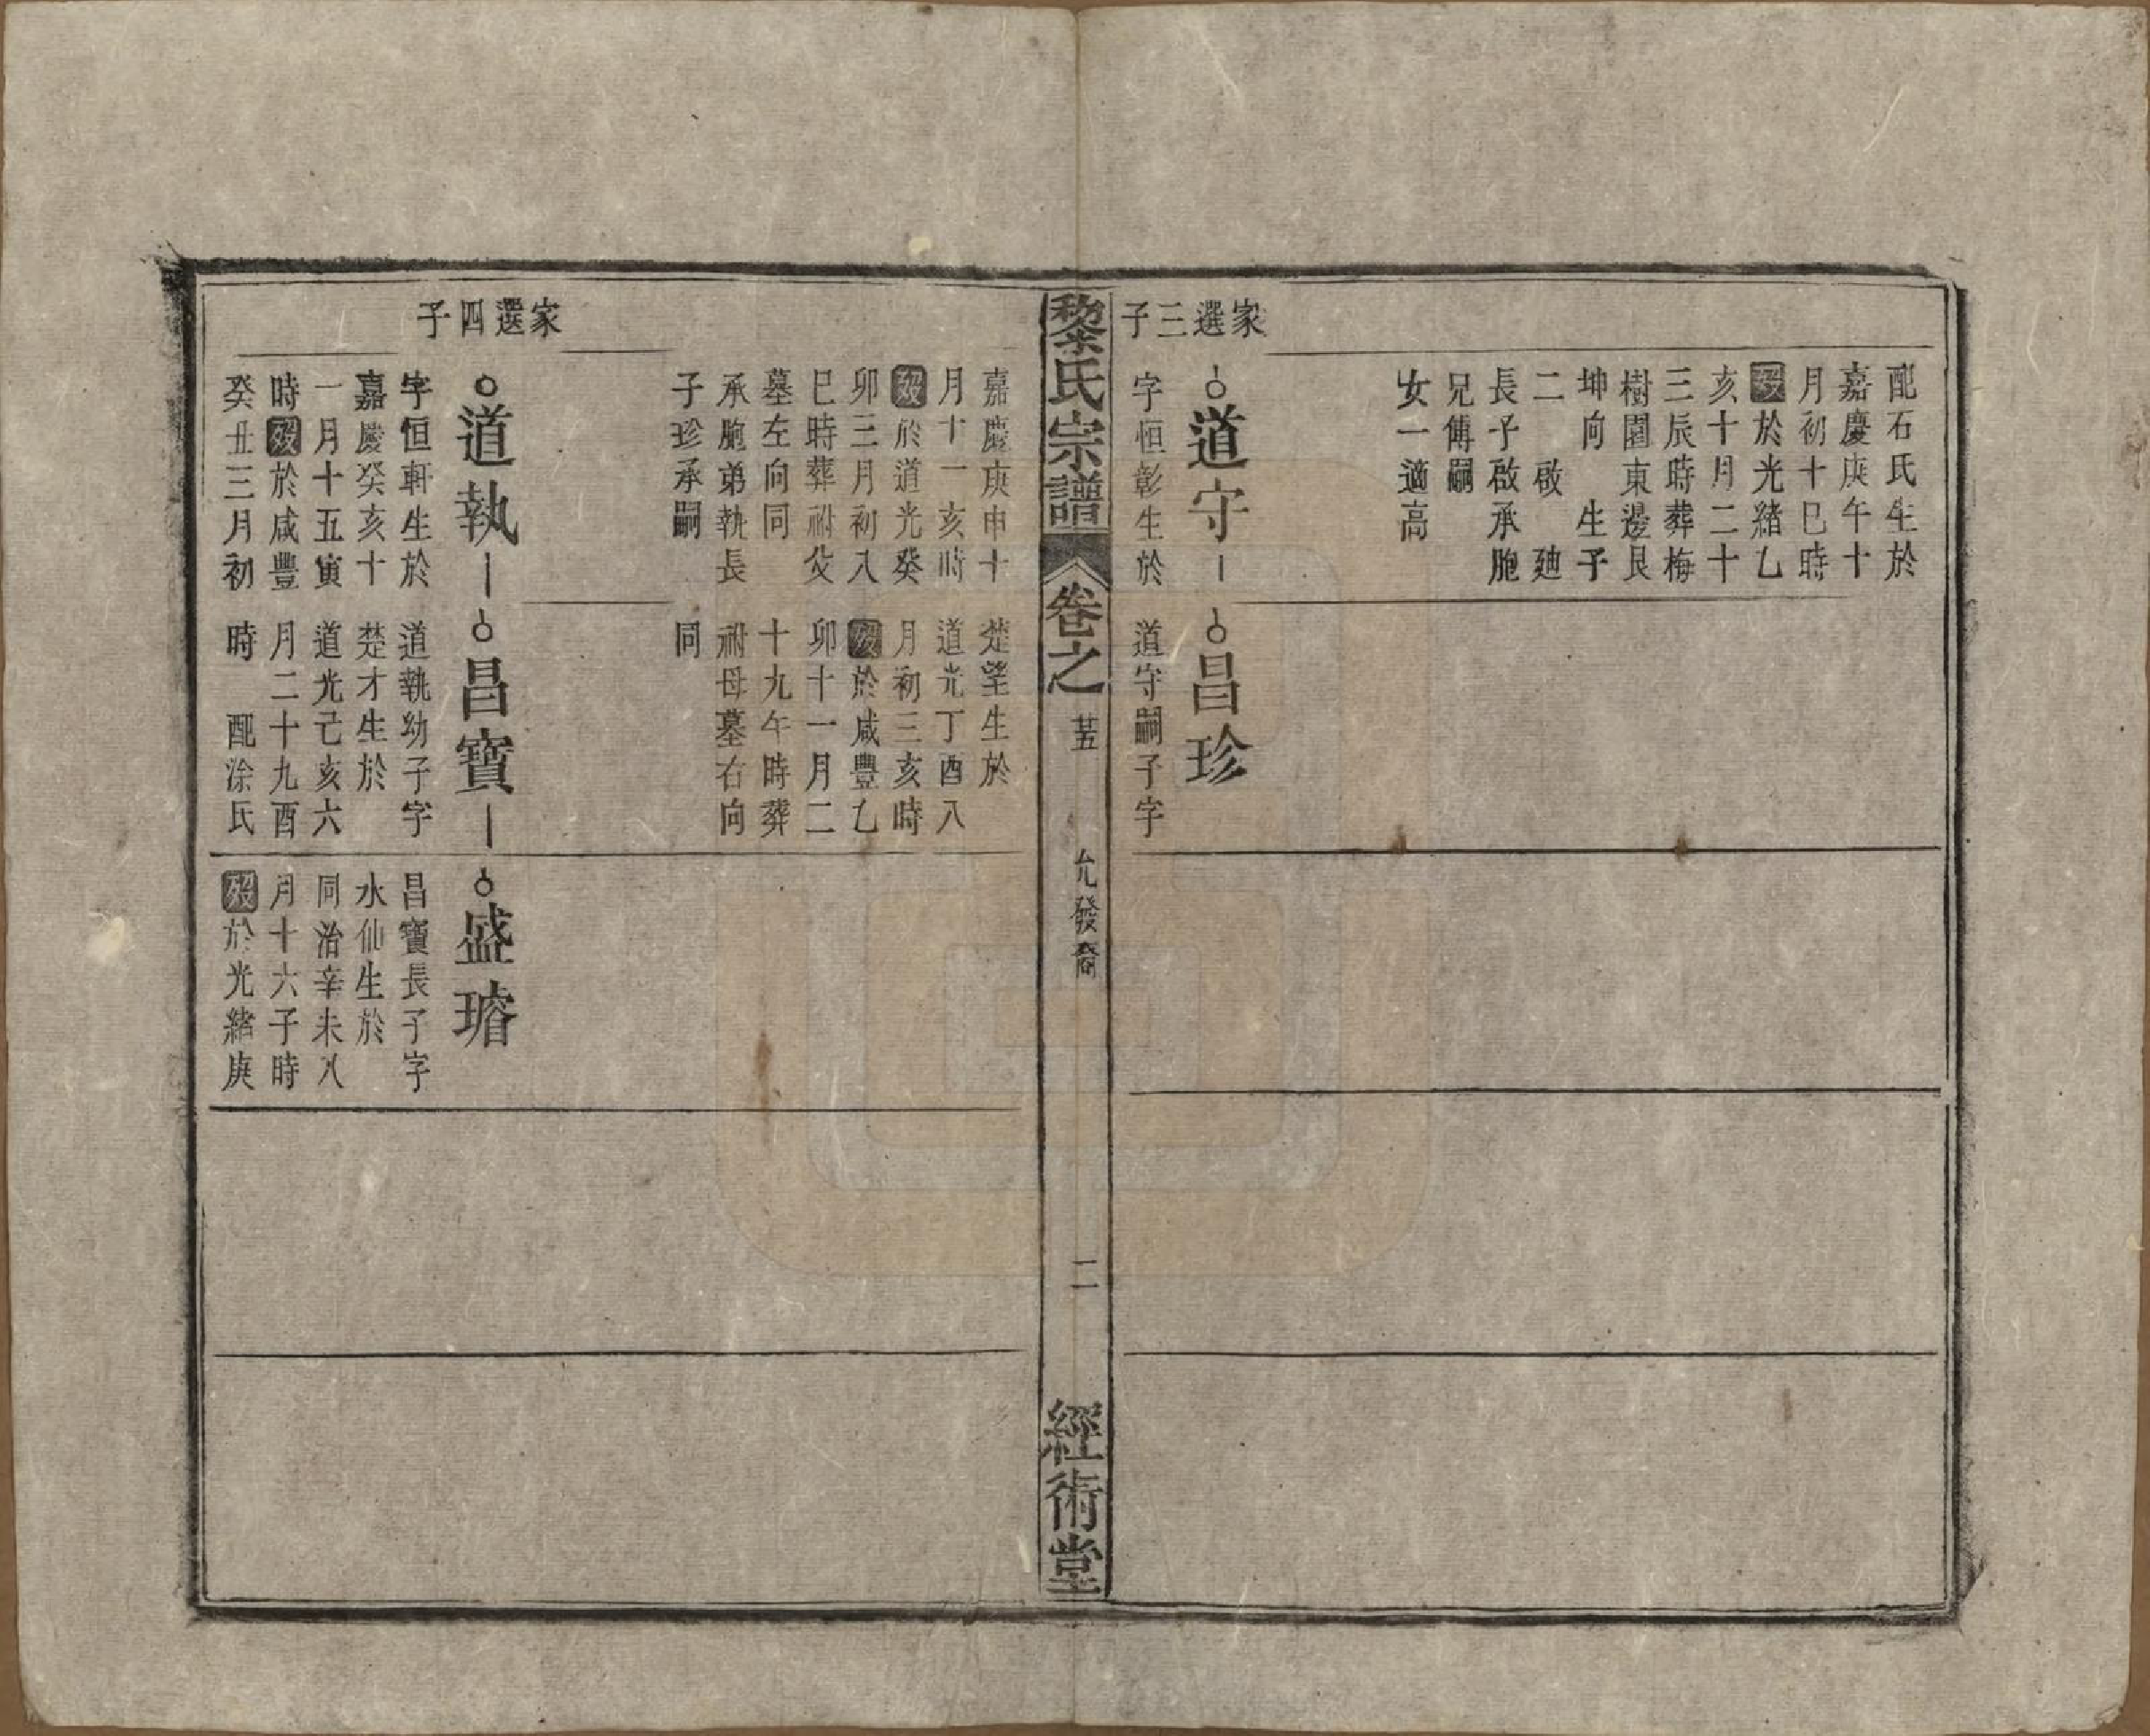 配石氏生於
嘉慶庚午十
月初十巳時
歿於光緒乙
亥十月二十
三辰時葬梅
樹園東邊艮
坤向 生子
二 啟 廸
長子啟承胞
兄傅嗣
女一適高
家選三子
道守
字恒彰生於
昌珍
道守嗣子字
黎氏宗譜
卷之
五
允發裔
二
經術堂
嘉慶庚申十
月十一亥時
歿於道光癸
卯三月初八
巳時葬祔父
墓左向同
承胞弟執長
子珍承嗣
楚望生於
道光丁酉八
月初三亥時
歿於咸豐乙
卯十一月二
十九午時葬
祔母墓右向
同
家選四子
道執
字恒軒生於
嘉慶癸亥十
一月十五寅
時歿於咸豐
癸丑三月初
昌寶
道執幼子字
楚才生於
道光己亥六
月二十九酉
時 配涂氏
盛璿
昌寶長子字
水仙生於
同治辛未八
月十六子時
歿於光緒庚